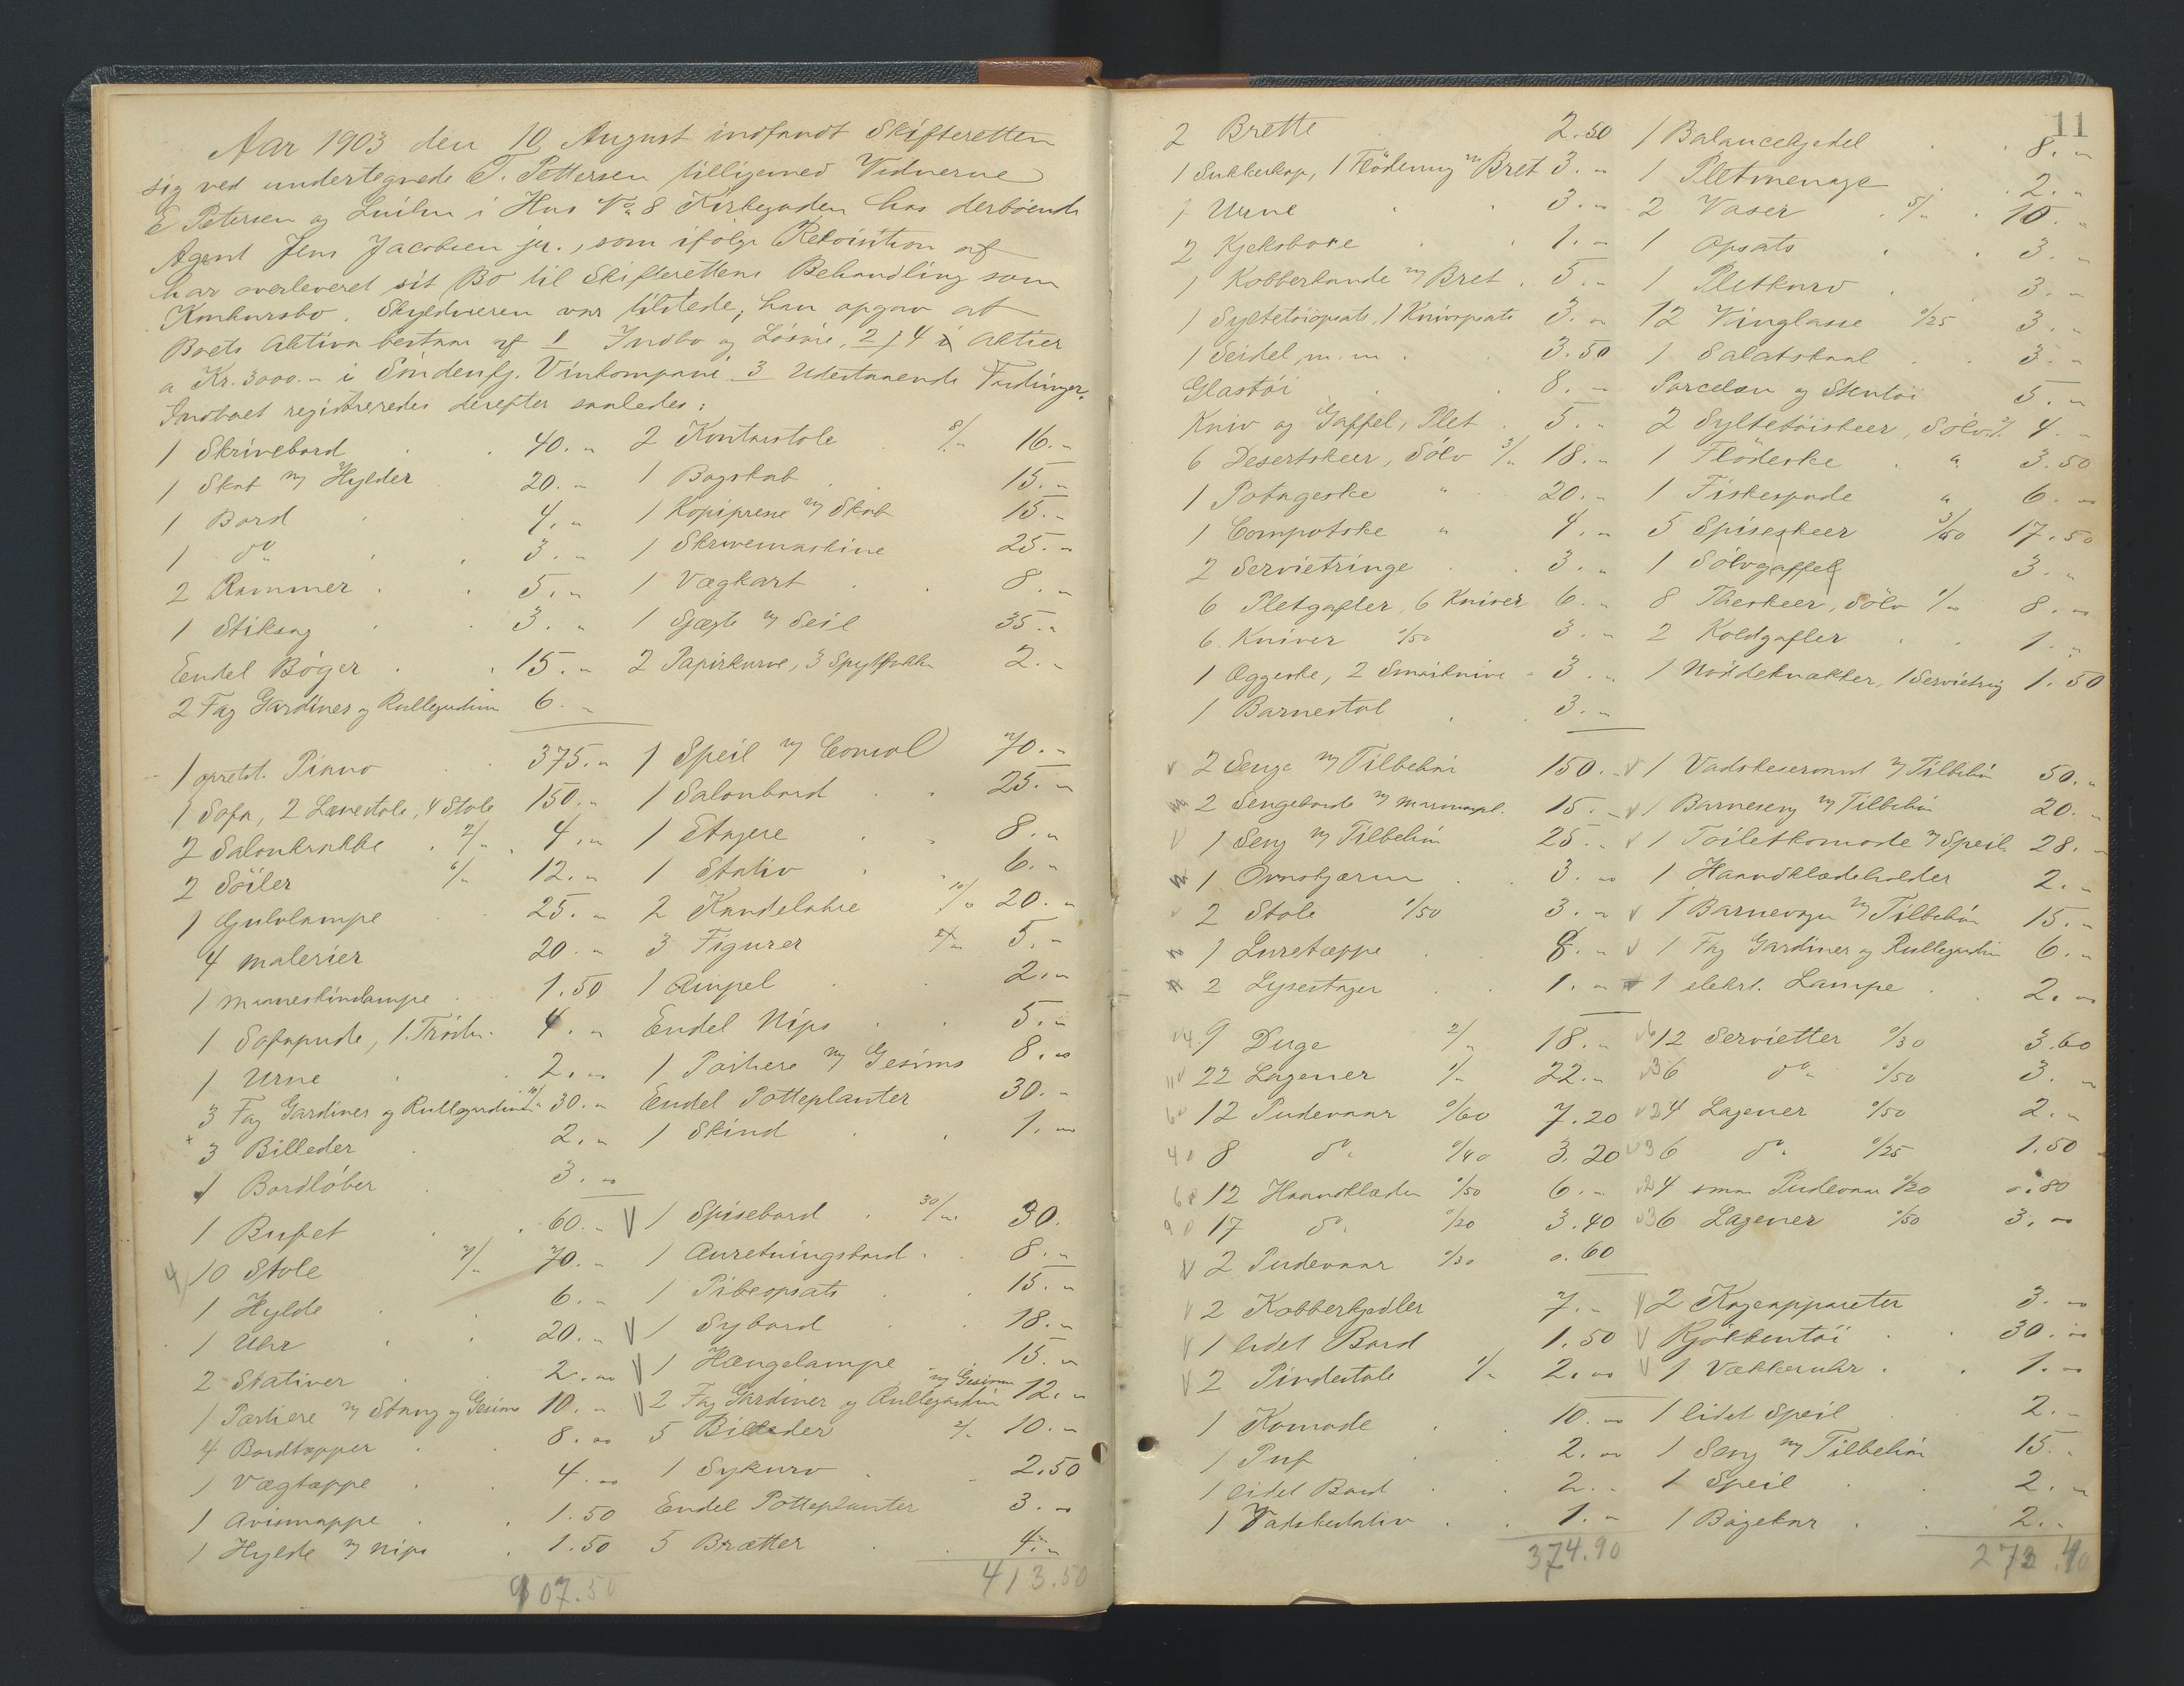 Aar 1903 den 10 August indfandt Skifteretten
sig ved undertegnede T. Pettersen tilligemed Vidnerne
E Petersen og i Hus No 8 Kirkegaden hos derboende
Agent Jens Jacobsen jr., som ifølge Rekvisition af
har overleveret sit Bo til Skifterettens Behandling som
Konkursbo. Skyldneren var tilstede, han opgav at
Boets Aktiva bestaar af 1 Indbo og Løsøre, 2, 4 Aktier
a Kr. 3000.- i Søndenfj. Vinkompani 3 Udestaaende Fordringer.
Indboet registreredes derefter saaledes:
1 Skrivebord 40.-
1 Skab m/ Hylder 20.-
1 Bord 4.-
1 do 3.-
2 Rammer 5.-
1 Stiksag 3.-
Endel Bøger 15.-
2 Fag Gardiner og Rullegardin 6.-
2 Kontorstole 8/- 16.-
1 Bogskab 15.-
1 Kopipresse m/ Skab 15.-
1 Skrivemaskine 25.-
1 Vægkart 8.-
1 Sjægte m/ Seil 35.-
2 Papirkurve, 3 Spytbakker 2.-
1 opretst. Piano 375.-
1 Sofa, 2 Lænestole, 4 Stole 150.-
2 Salonkrakke 2/- 4.-
2 Söiler 6/- 12.-
1 Gulvlampe 25.-
4 Malerier 20.-
1 Maaneskinslampe 1.50
1 Sofapude, 1 4.-
1 Urne 2.-
3 Fag Gardiner og Rullegardiner 10/- 30.-
3 Billeder 2.-
1 Bordløber 3.-
1 Speil m/ Consol 70.-
1 Salonbord 25.-
1 Etagere 8.-
1 Stativ 6.-
2 Kandelabre 10/- 20.-
3 Figurer 5.-
1 Ampel 2.-
Endel Nips 5.-
1 Portiere m/ Gesims 8.-
Endel Potteplanter 30.-
1 Skind 1.-
1 Bufet 60.-
10 Stole 7/- 70.-
1 Hylde 6.-
1 Uhr 20.-
2 Stativer 2.-
1 Portiere m/ Stang og Gesims 10.-
4 Bordtæpper 8.-
1 Vægtæppe 4.-
1 Avismappe 1.50
1 Hylde m/ Nips 1.50
907.50
1 Spisebord 30/- 30.
1 Anretningsbord 8.-
1 Pibeopsats 15.-
1 Sybord 18.-
1 Hængelampe 15.-
2 Fag Gardiner og Rullegardin m/ Gesimser 12.-
5 Billeder 2/- 10.-
1 Sykurv 2.50
Endel Potteplanter 3.-
5 Brætter 4.-
413.50
11
2 Brette 2.50
1 Sukkerkop, 1 Flödemug m/ Bret 3.-
1 Urne 3.-
2 Kjeksboxe 1.-
1 Kobberkande m/ Bret 5.-
1 Syltetöiopsats, 1 Knivopsats 3.-
1 Seidel, m.m. 3.50
Glastöi 8.-
Kniv og Gaffel, Plet 5.-
6 Desertskeer, Sölv 3/- 18.-
1 Potageske " 20.-
1 Compotske " 4.-
2 Servietringe 3.-
6 Pletgafler, 6 Kniver 6.-
6 Kniver 0/50 3.-
1 Æggeske, 2 Smörknive 3.-
1 Barnestol 3.-
1 Balancekjedel 8.-
1 Pletmenage 2.-
2 Vaser 5/- 10.-
1 Opsats 3.-
1 Pletkurv 3.-
12 Vinglasse 0/25 3.-
1 Salatskaal 3.-
Porcelæn og Stentöi 5.-
2 Syltetöiskeer, Sölv 2/- 4.-
1 Flödeske " 3.50
1 Fiskespade " 6.-
5 Spiseskeer 3/50 17.50
1 Sölvgaffel 3.-
8 Theskeer, Sölv 1/- 8.-
2 Koldgafler 1.-
1 Nöddeknækker, 1 Servietring 1.50
2 Senge m/ Tilbehör 150.-
2 Sengeborde m/ Marmorpl. 15.-
1 Seng m/ Tilbehör 25.-
1 Ovnskjærm 3.-
2 Stole 1/50 3.-
1 Luretæppe 8.-
2 Lysestager 1.-
1 Vadskeservant m/ Tilbehör 50.-
1 Barneseng m/ Tilbehör 20.-
1 Toiletkomode m/ Speil 28.-
1 Haandklædeholder 2.-
1 Barnevogn m/ Tilbehör 15.-
1 Fag Gardiner og Rullegardin 6.-
1 elektr. Lampe 2.-
9 Duge 2/- 18.-
22 Lagener 1/- 22.-
12 Pudevaar 0/60 7.20
8 do 0/40 3.20
12 Haandklæder 0/50 6.-
17 do 0/20 3.40
2 Pudevaar 0/30 0.60
12 Servietter 0/30 3.60
6 do 0/50 3.-
4 Lagener 0/50 2.-
6 do 0/25 1.50
4 smaa Pudevaar 0/20 0.80
6 Lagener 0/50 3.-
2 Kobberkjedler 7.-
1 lidet Bord 1.50
2 Pindestole 1/- 2.-
2 Kogeapparater 3.-
Kjökkentöi 30.-
1 Vækkeruhr 1.-
1 Komode 10.-
1 Puf 2.-
1 lidet Bord 2.-
1 Vadskestativ 1.-
374.90
1 lidet Speil 2.-
1 Seng m/ Tilbehör 15.-
1 Speil 2.-
1 Bagekar 2.-
273.40